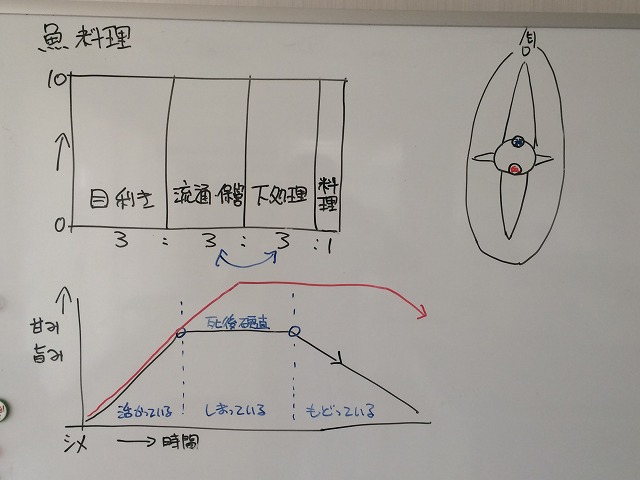 魚料理
10
目利き 流通・保管 下処理 料理
0
3 : 3 : 3 : 1
甘み
旨み
死後硬直
活かっている しまっている もどっている
シメ → 時間